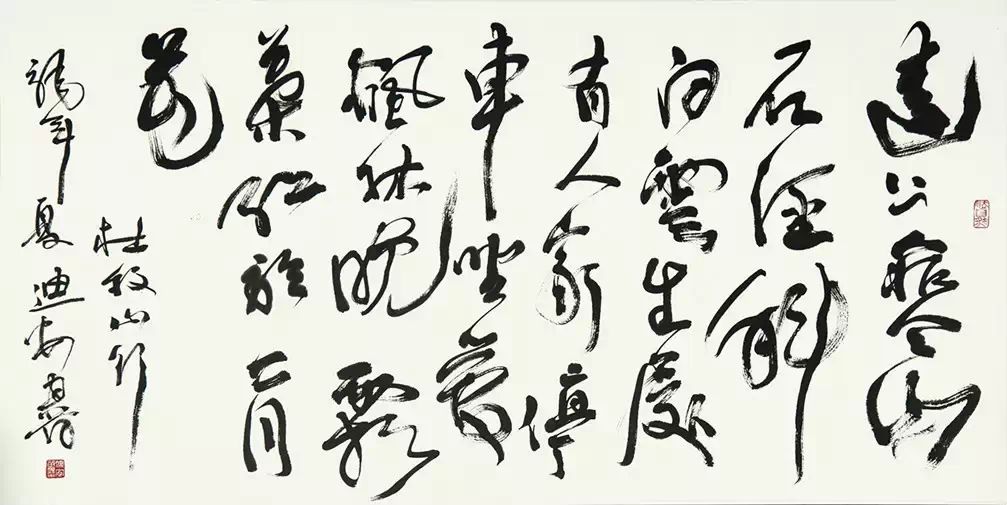 遠上寒山
石徑斜
白雲生處
有人家停
車坐愛
楓林晚霜
葉紅於二月
花
杜牧山行
龍年夏迪安